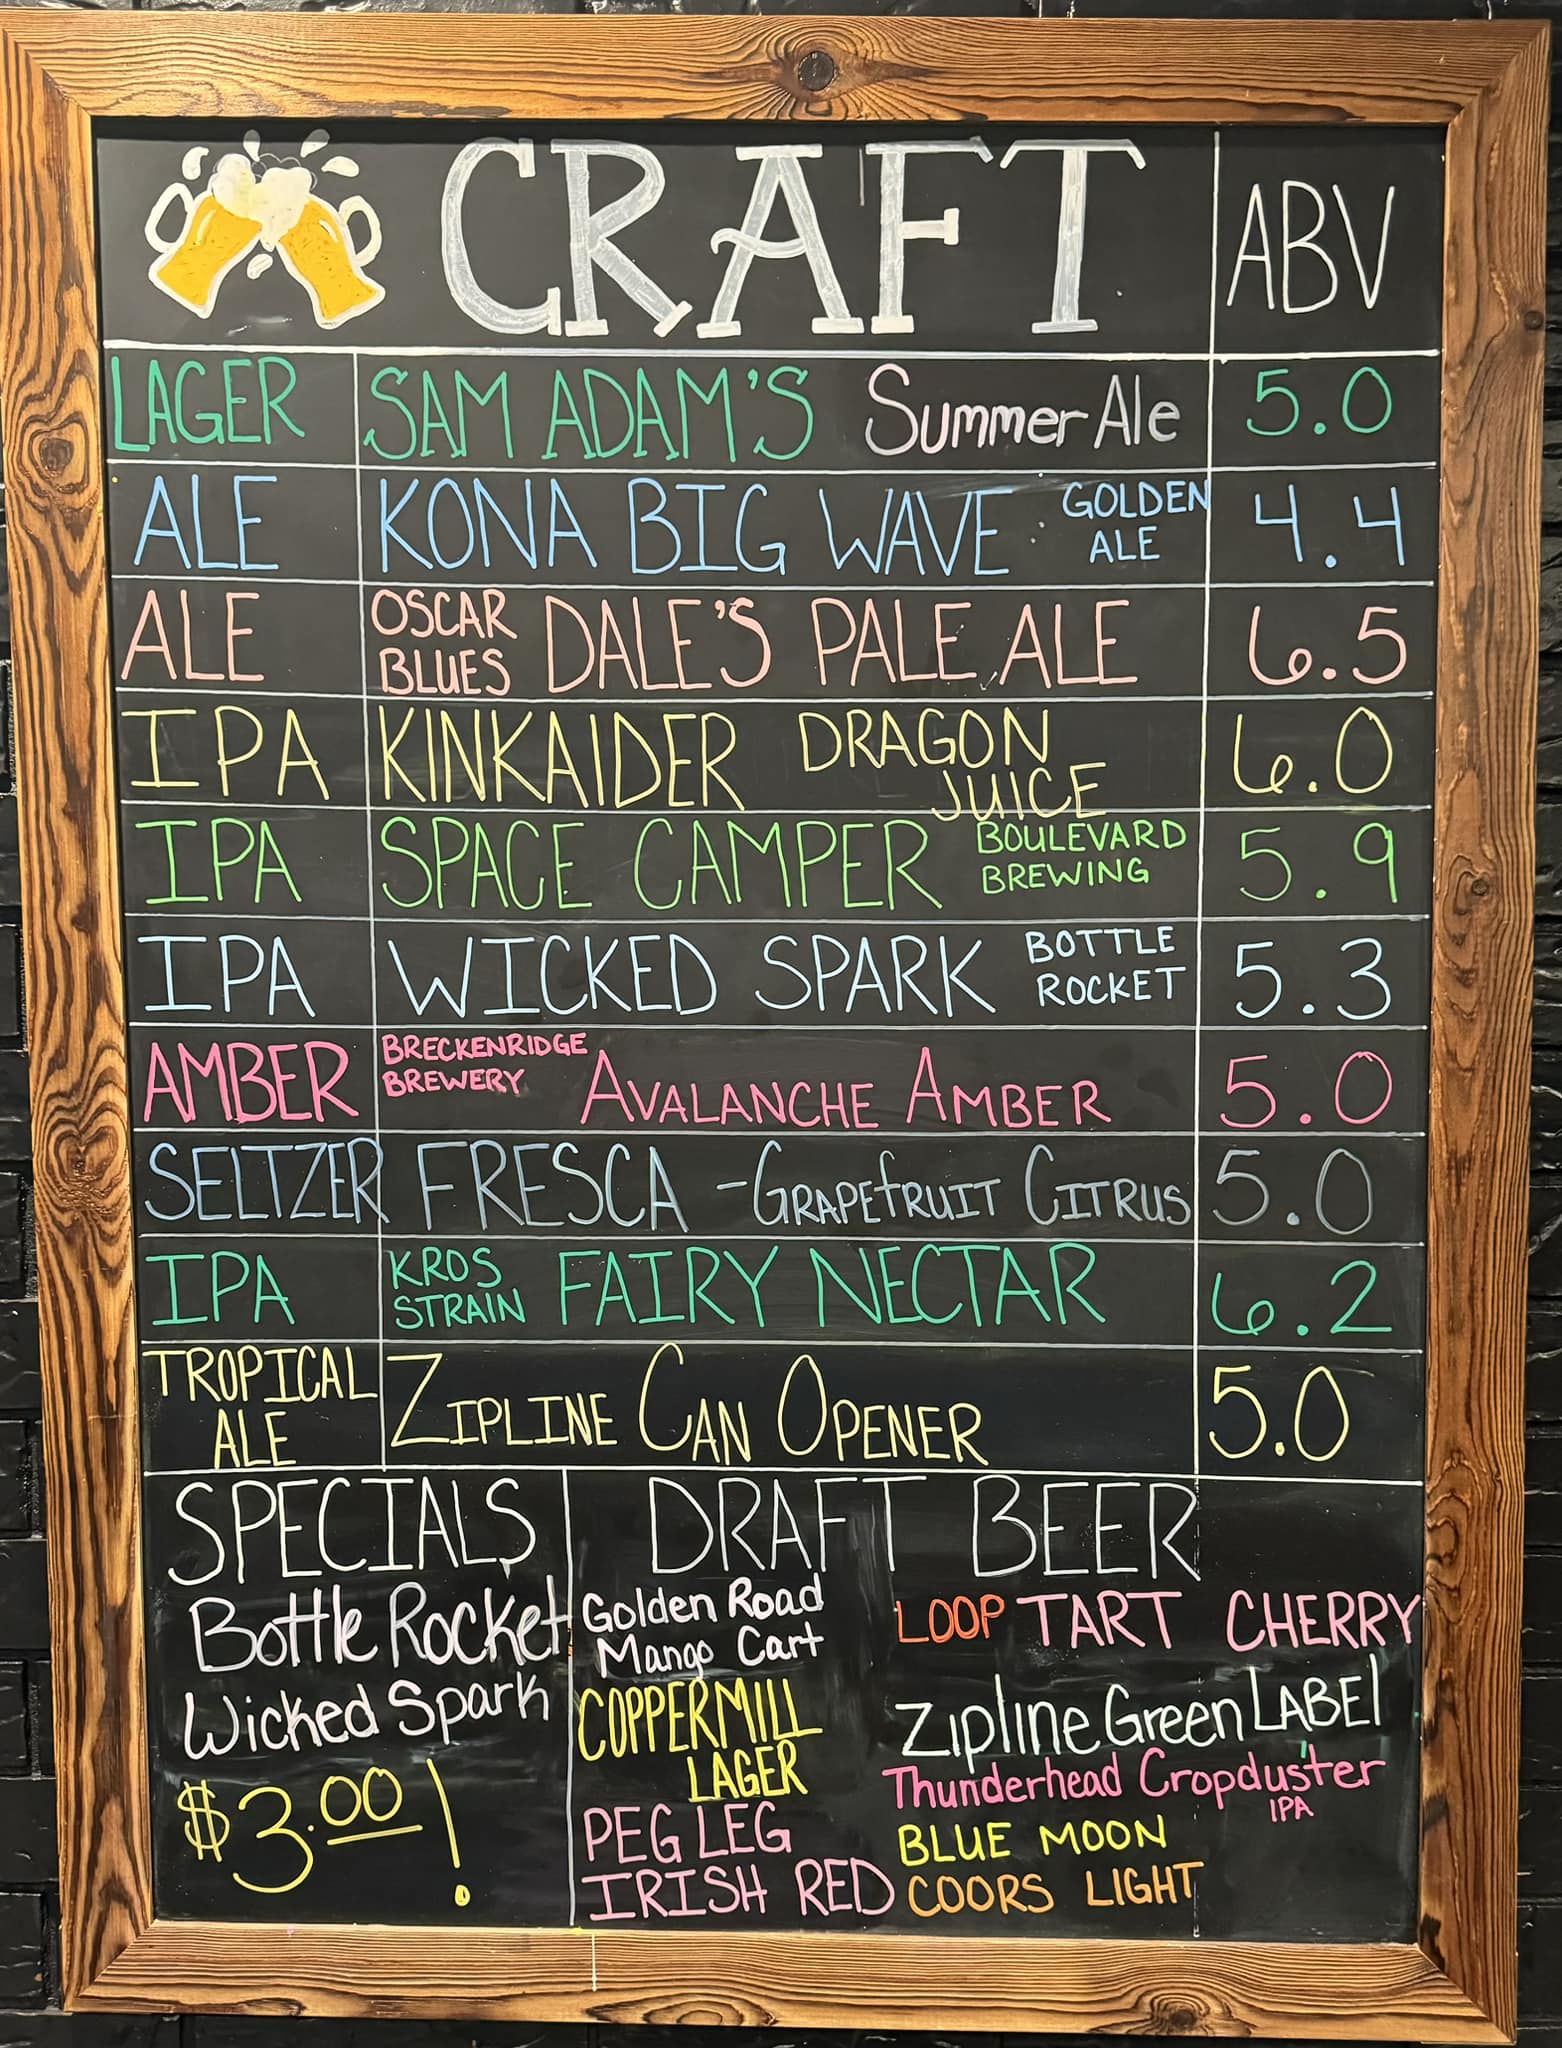 CRAFT ABV
LAGER SAM ADAM'S Summer Ale 5.0
ALE KONA BIG WAVE GOLDEN ALE 4.4
ALE OSCAR BLUES DALE'S PALE ALE 6.5
IPA KINKAIDER DRAGON JUICE 6.0
IPA SPACE CAMPER BOULEVARD BREWING 5.9
IPA WICKED SPARK BOTTLE ROCKET 5.3
AMBER BRECKENRIDGE BREWERY AVALANCHE AMBER 5.0
SELTZER FRESCA - GRAPEFRUIT CITRUS 5.0
IPA KROS STRAIN FAIRY NECTAR 6.2
TROPICAL ALE ZIPLINE CAN OPENER 5.0
SPECIALS
Bottle Rocket
Wicked Spark
$3.00!
DRAFT BEER
Golden Road
Mango Cart
COPPERMILL
LAGER
PEG LEG
IRISH RED
LOOP TART CHERRY
Zipline Green LABEL
Thunderhead Cropduster
IPA
BLUE MOON
COORS LIGHT